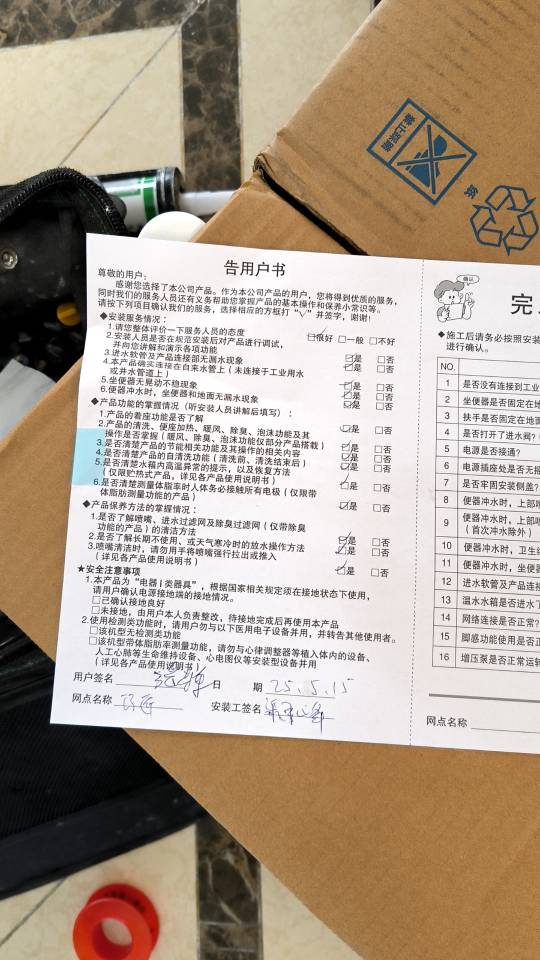 禁止踩踏
告用户书
尊敬的用户：
感谢您选择了本公司产品。作为本公司产品的用户，您将得到优质的服务，
同时我们的服务人员还有义务帮助您掌握产品的基本操作和保养小常识等。
请按下列项目确认我们的服务，选择相应的方框打"√"并签字，谢谢!
◆安装服务情况：
1.请您整体评价一下服务人员的态度 ☑很好 □一般 □不好
2.安装人员是否在规范安装后对产品进行调试，
并向您讲解和演示各项功能 ☑是 □否
3.进水软管及产品连接部无漏水现象 ☑是 □否
4.本产品确实连接在自来水管上（未连接于工业用水
或井水管道上） ☑是 □否
5.坐便器无晃动不稳现象 ☑是 □否
6.便器冲水时，坐便器和地面无漏水现象 ☑是 □否
◆产品功能的掌握情况（听安装人员讲解后填写）：
1.产品的着座功能是否了解 ☑是 □否
2.产品的清洗、便座加热、暖风、除臭、泡沫功能及其
操作是否掌握（暖风、除臭、泡沫功能仅部分产品搭载） ☑是 □否
3.是否清楚产品的节能相关功能及其操作的相关内容 ☑是 □否
4.是否清楚产品的自清洗功能（清洗前、清洗结束后） ☑是 □否
5.是否清楚水箱内高温异常的提示，以及恢复方法
（仅限贮热式产品，详见各产品使用说明书） ☑是 □否
6.是否清楚测量体脂率时人体务必接触所有电极（仅限带
体脂肪测量功能的产品） ☑是 □否
◆产品保养方法的掌握情况：
1.是否了解喷嘴、进水过滤网及除臭过滤网（仅带除臭
功能的产品）的清洁方法 ☑是 □否
2.是否了解长期不使用、或天气寒冷时的放水操作方法 ☑是 □否
3.喷嘴清洁时，请勿用手将喷嘴强行拉出或推入
（详见各产品使用说明书） ☑是 □否
★安全注意事项
1.本产品为"电器Ⅰ类器具"，根据国家相关规定须在接地状态下使用，
请用户确认电源接地端的接地情况。
□已确认接地良好
□未接地，由用户本人负责整改，待接地完成后再使用本产品
2.使用检测类功能时，请用户勿与以下医用电子设备并用，并转告其他使用者。
□该机型无检测类功能
□该机型带体脂肪率测量功能，请勿与心律调整器等植入体内的设备、
人工心肺等生命维持设备、心电图仪等安装型设备并用
（详见各产品使用说明书）
用户签名 日 期 25.5.15
网点名称 安装工签名
确认
完
◆施工后请务必按照安装
进行确认。
NO.
1 是否没有连接到工业
2 坐便器是否固定在地
3 扶手是否固定在地面
4 是否打开了进水阀?
5 电源是否接通?
6 电源插座处是否无
7 是否牢固安装侧盖?
8 便器冲水时，上部
9 便器冲水时，上部
（首次冲水除外）
10 便器冲水时，卫生
11 便器冲水时，坐便
12 进水软管及产品连
13 温水水箱是否进水
14 网络连接是否正常?
15 脚感功能使用是否正
16 增压泵是否正常运
网点名称